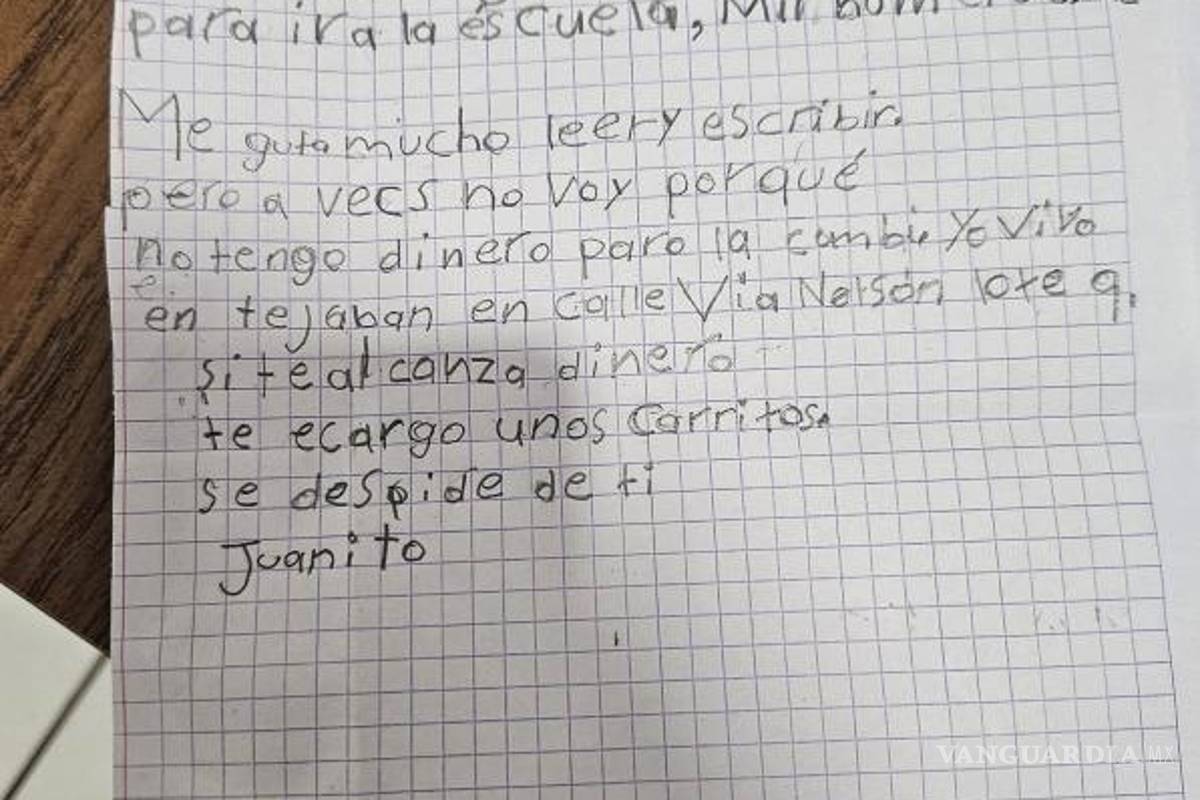 para ir a la escuela, Mi
Me guta mucho leer y escribir.
pero a vecs no voy porqué
no tengo dinero para la combi Yo Vivo
en tejaban en calle Vía Nelsón lote 9.
si te alcanza dinero
te ecargo unos Carritos.
se despide de ti
Juanito
VANGUARDIA MX